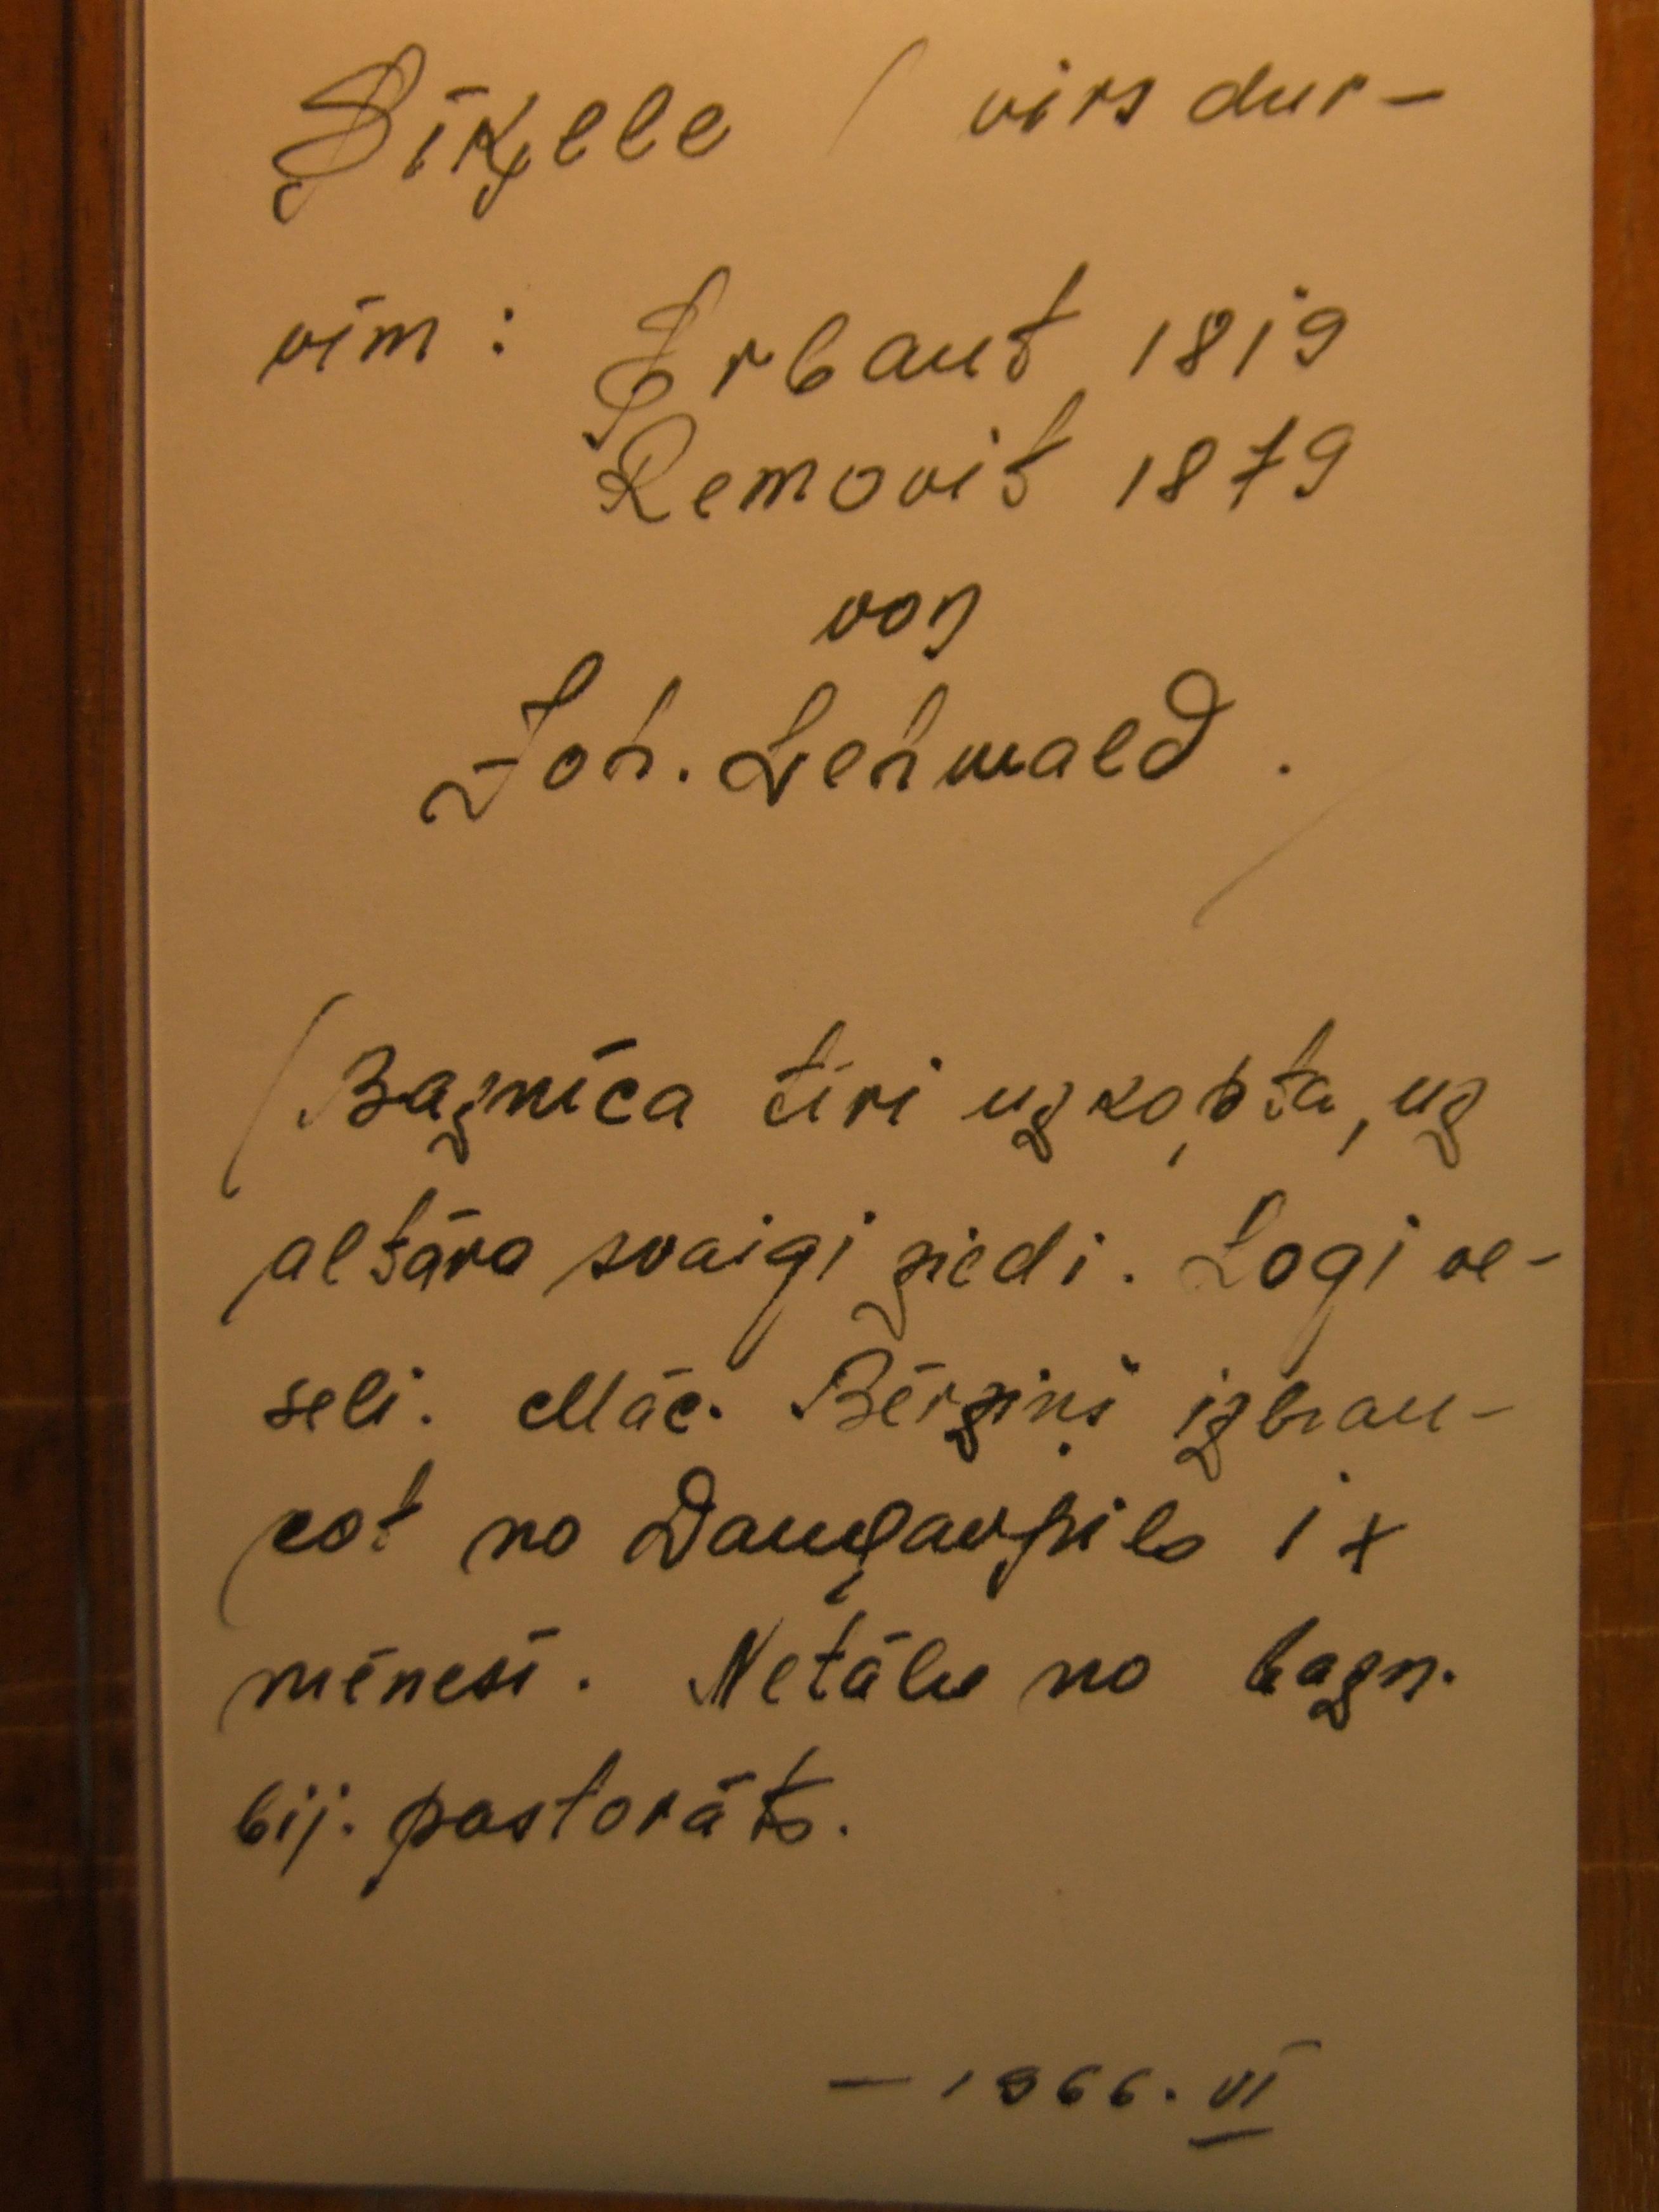 Siķele / virs dur-
vīm : Erbaut 1819
Removit 1879
von
Joh. Lehwald .
/ Baznīca tīri uzkopta, uz
altāra svaigi ziedi. Logi ve-
seli. Māc. Bērziņš izbrau-
cot no Daugavpils 1 x
mēnesī. Netālu no bazn.
bij. pastorāts.
— 1966. VI